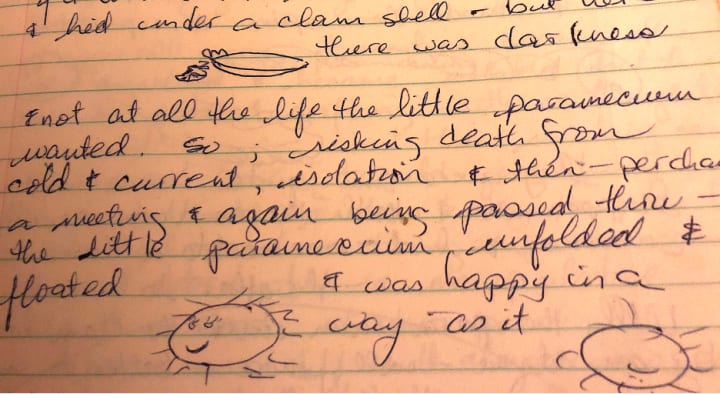 & hid under a clam shell - but
there was darkness
& not at all the life the little paramecium
wanted. So, risking death from
cold & current, isolation & then - percha
a meeting & again being passed thru -
the little paramecium unfolded &
floated & was happy in a
way - as it